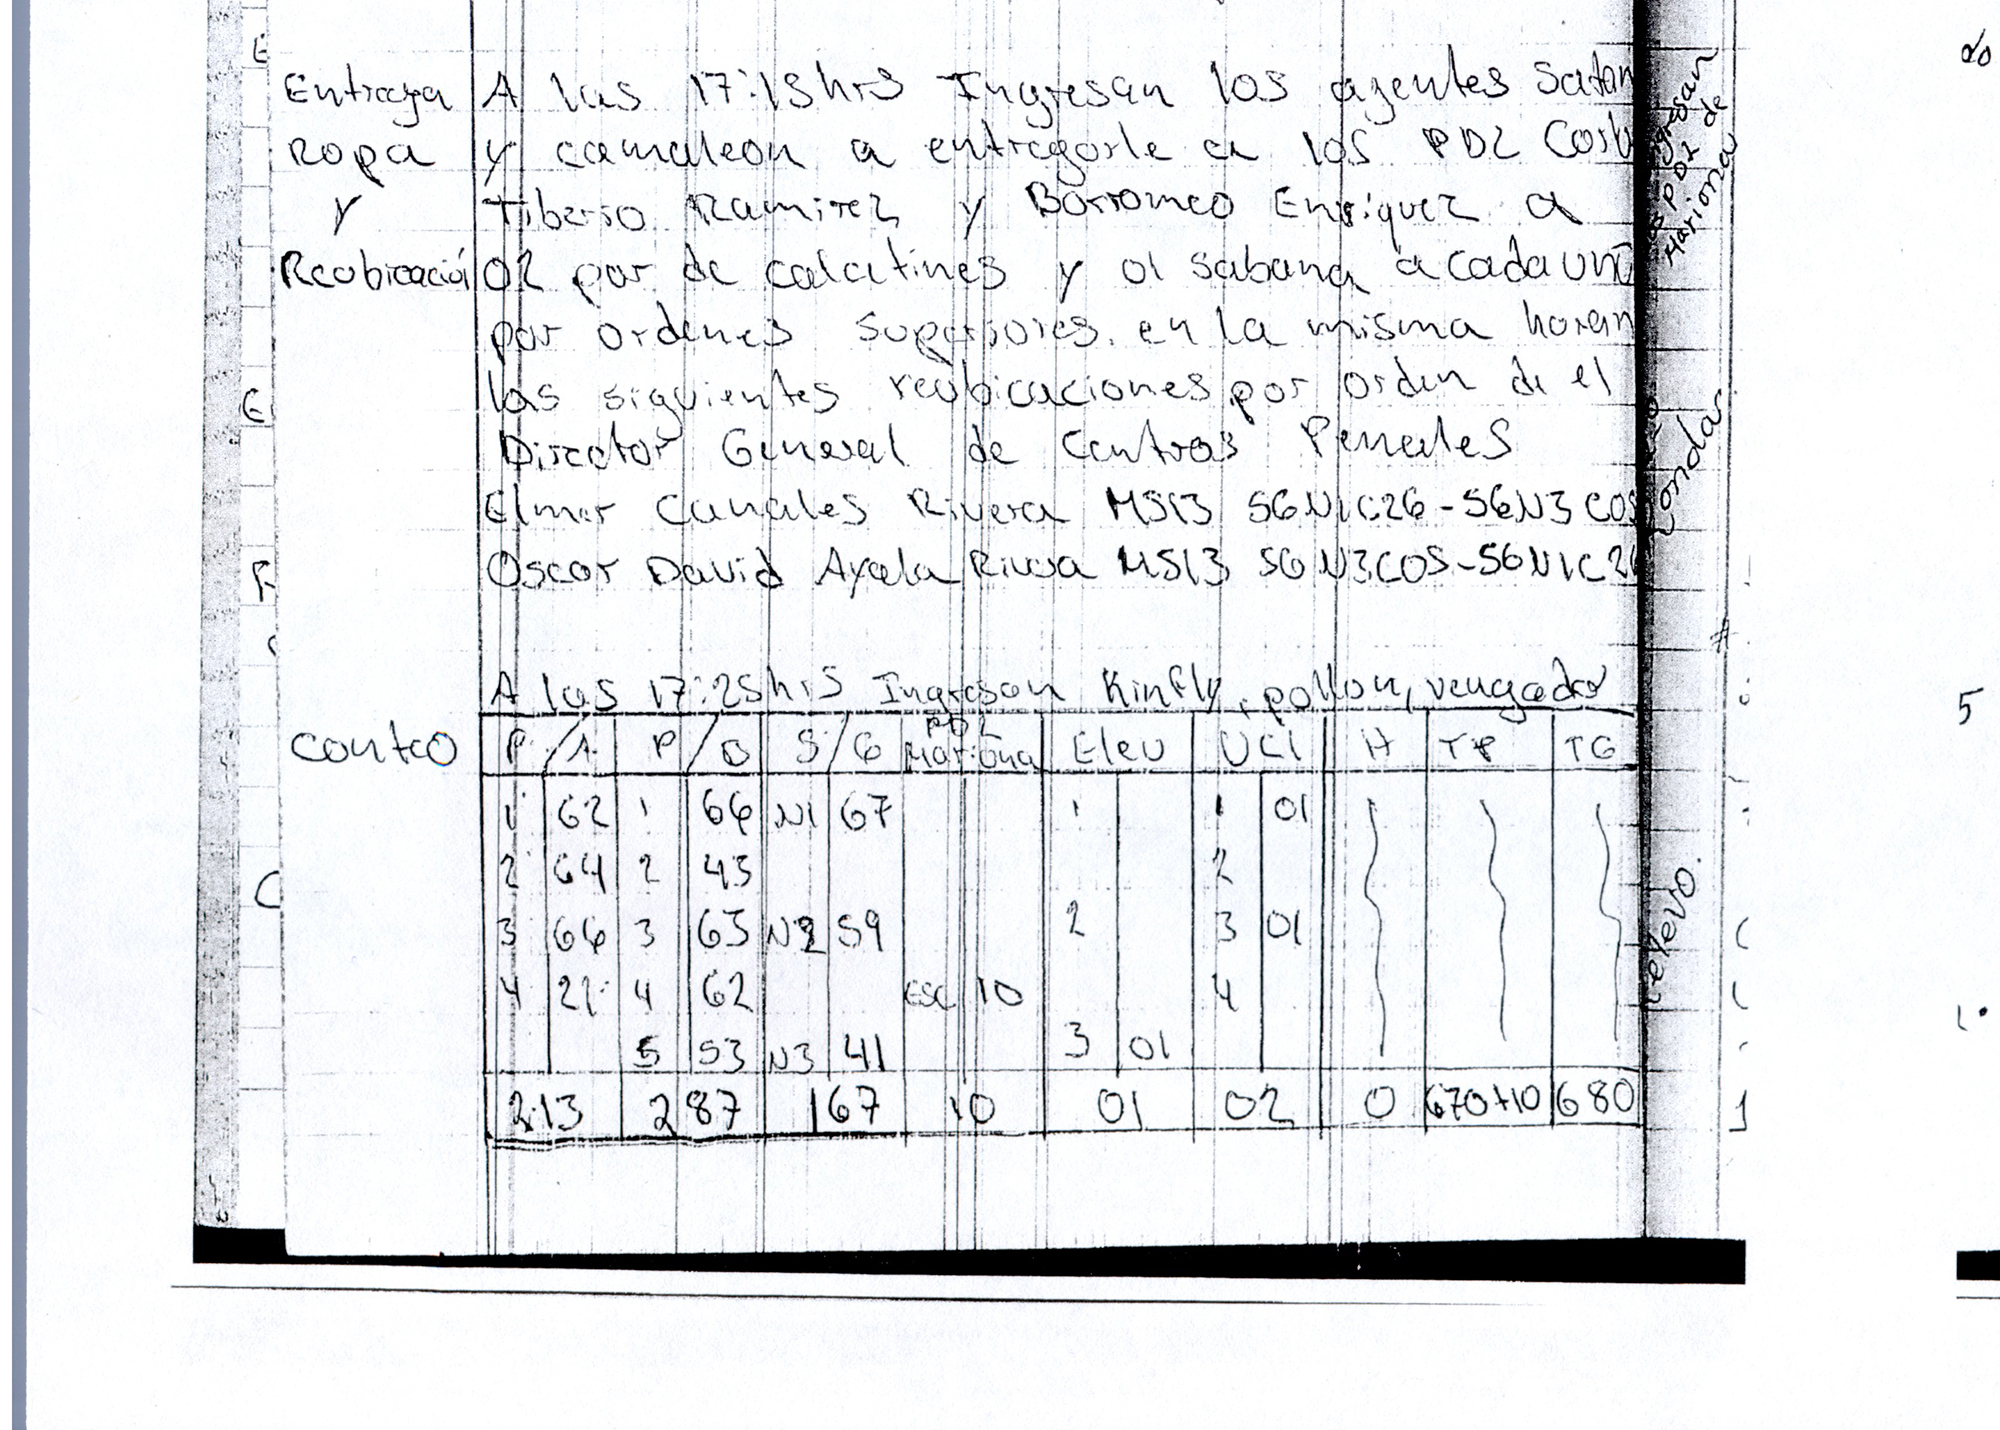 Entrega A las 17:15hrs Ingresan los agentes Satan
Ropa y camaleon a entregarle a los PD2
y Tiberio Ramirez y Borromeo Enriquez a
Reubicació 02 par de calcetines y 01 sabana a cada uno
por ordenes superiores. en la misma hora
las siguientes reubicaciones por orden de el
Director General de Centros Penales
Elmer Canales Rivera MS13 S6N1C26-S6N3C05
Oscar David Ayala Rivera MS13 S6N3C05-S6N1C26
A las 17:25hrs Ingresan Kinfly, pollon, vengador
conteo P/A P/B S/6 PD2 Mariona Elev UCI H TP TG
1 62 1 66 N1 67 1 1 01
2 64 2 43 2
3 66 3 63 N2 59 2 3 01
4 21 4 62 ESC 10 4
5 53 N3 41 3 01
213 287 167 10 01 02 0 670+10 680
PD2 de
Mariona
Relevo.